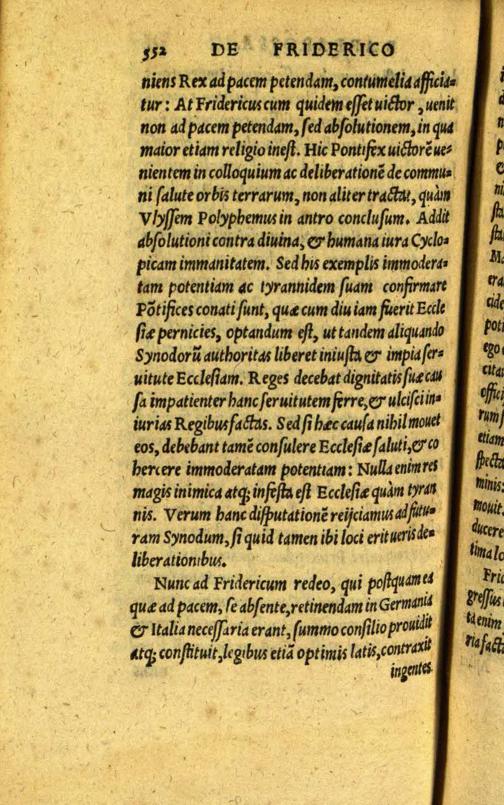 552 DE FRIDERICO
niens Rex ad pacem petendam, contumelia afficia-
tur: At Fridericus cum quidem esset uictor, uenit
non ad pacem petendam, sed absolutionem, in qua
maior etiam religio inest. Hic Pontifex uictorē ue-
nientem in colloquium ac deliberationē de commu-
ni salute orbis terrarum, non aliter tractat, quàm
Vlyssem Polyphemus in antro conclusum. Addit
absolutioni contra diuina, & humana iura Cyclo-
picam immanitatem. Sed his exemplis immodera-
tam potentiam ac tyrannidem suam confirmare
Pōtifices conati sunt, quæ cum diu iam fuerit Eccle
siæ pernicies, optandum est, ut tandem aliquando
Synodorū authoritas liberet iniusta & impia ser-
uitute Ecclesiam. Reges decebat dignitatis suæ cau
sa impatienter hanc seruitutem ferre, & ulcisci in-
iurias Regibus factas. Sed si hæc causa nihil mouet
eos, debebant tamē consulere Ecclesiæ saluti, & co
hercere immoderatam potentiam: Nulla enim res
magis inimica atq; infesta est Ecclesiæ quàm tyran
nis. Verum hanc disputationē reijciamus ad futu-
ram Synodum, si quid tamen ibi loci erit ueris de-
liberationibus.
Nunc ad Fridericum redeo, qui postquam ea
quæ ad pacem, se absente, retinendam in Germania
& Italia necessaria erant, summo consilio prouidit
atq; constituit, legibus etiā optimis latis, contraxit
ingentes